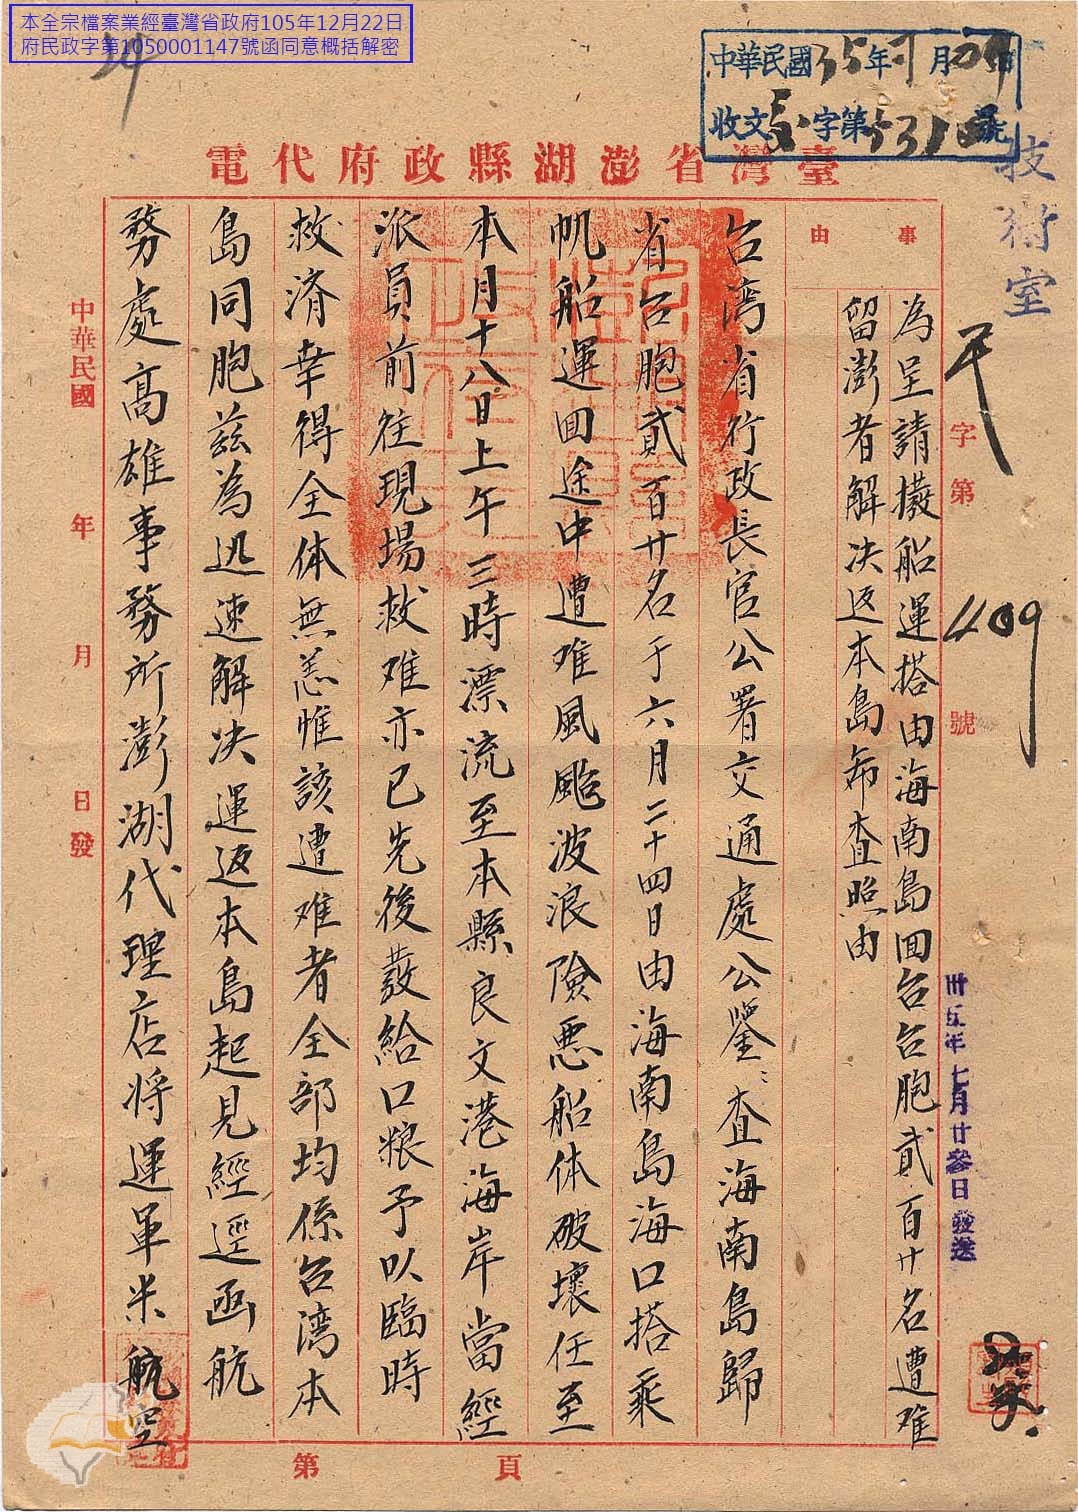 本全宗檔案業經臺灣省政府105年12月22日
府民政字第1050001147號函同意概括解密
中華民國35年7月24日
收文 字第5310號
技術室
臺灣省澎湖縣政府代電
字第409號
卅五年七月廿叁日發送
事由
為呈請撥船運搭由海南島囬台台胞貳百廿名遭难
留澎者解决返本島希查照由
台湾省行政長官公署交通處公鑒:查海南島歸
省台胞貳百廿名于六月二十四日由海南島海口搭乘
帆船運囬途中遭难風颱波浪險恶船体破壞任至
本月十八日上午三時漂流至本縣良文港海岸當經
派員前往現場救难亦已先後發給口粮予以臨時
救济幸得全体無恙惟該遭难者全部均係台湾本
島同胞茲為迅速解决運返本島起見經逕函航
務處高雄事務所澎湖代理店将運軍米航空
中華民國 年 月 日發
第 頁